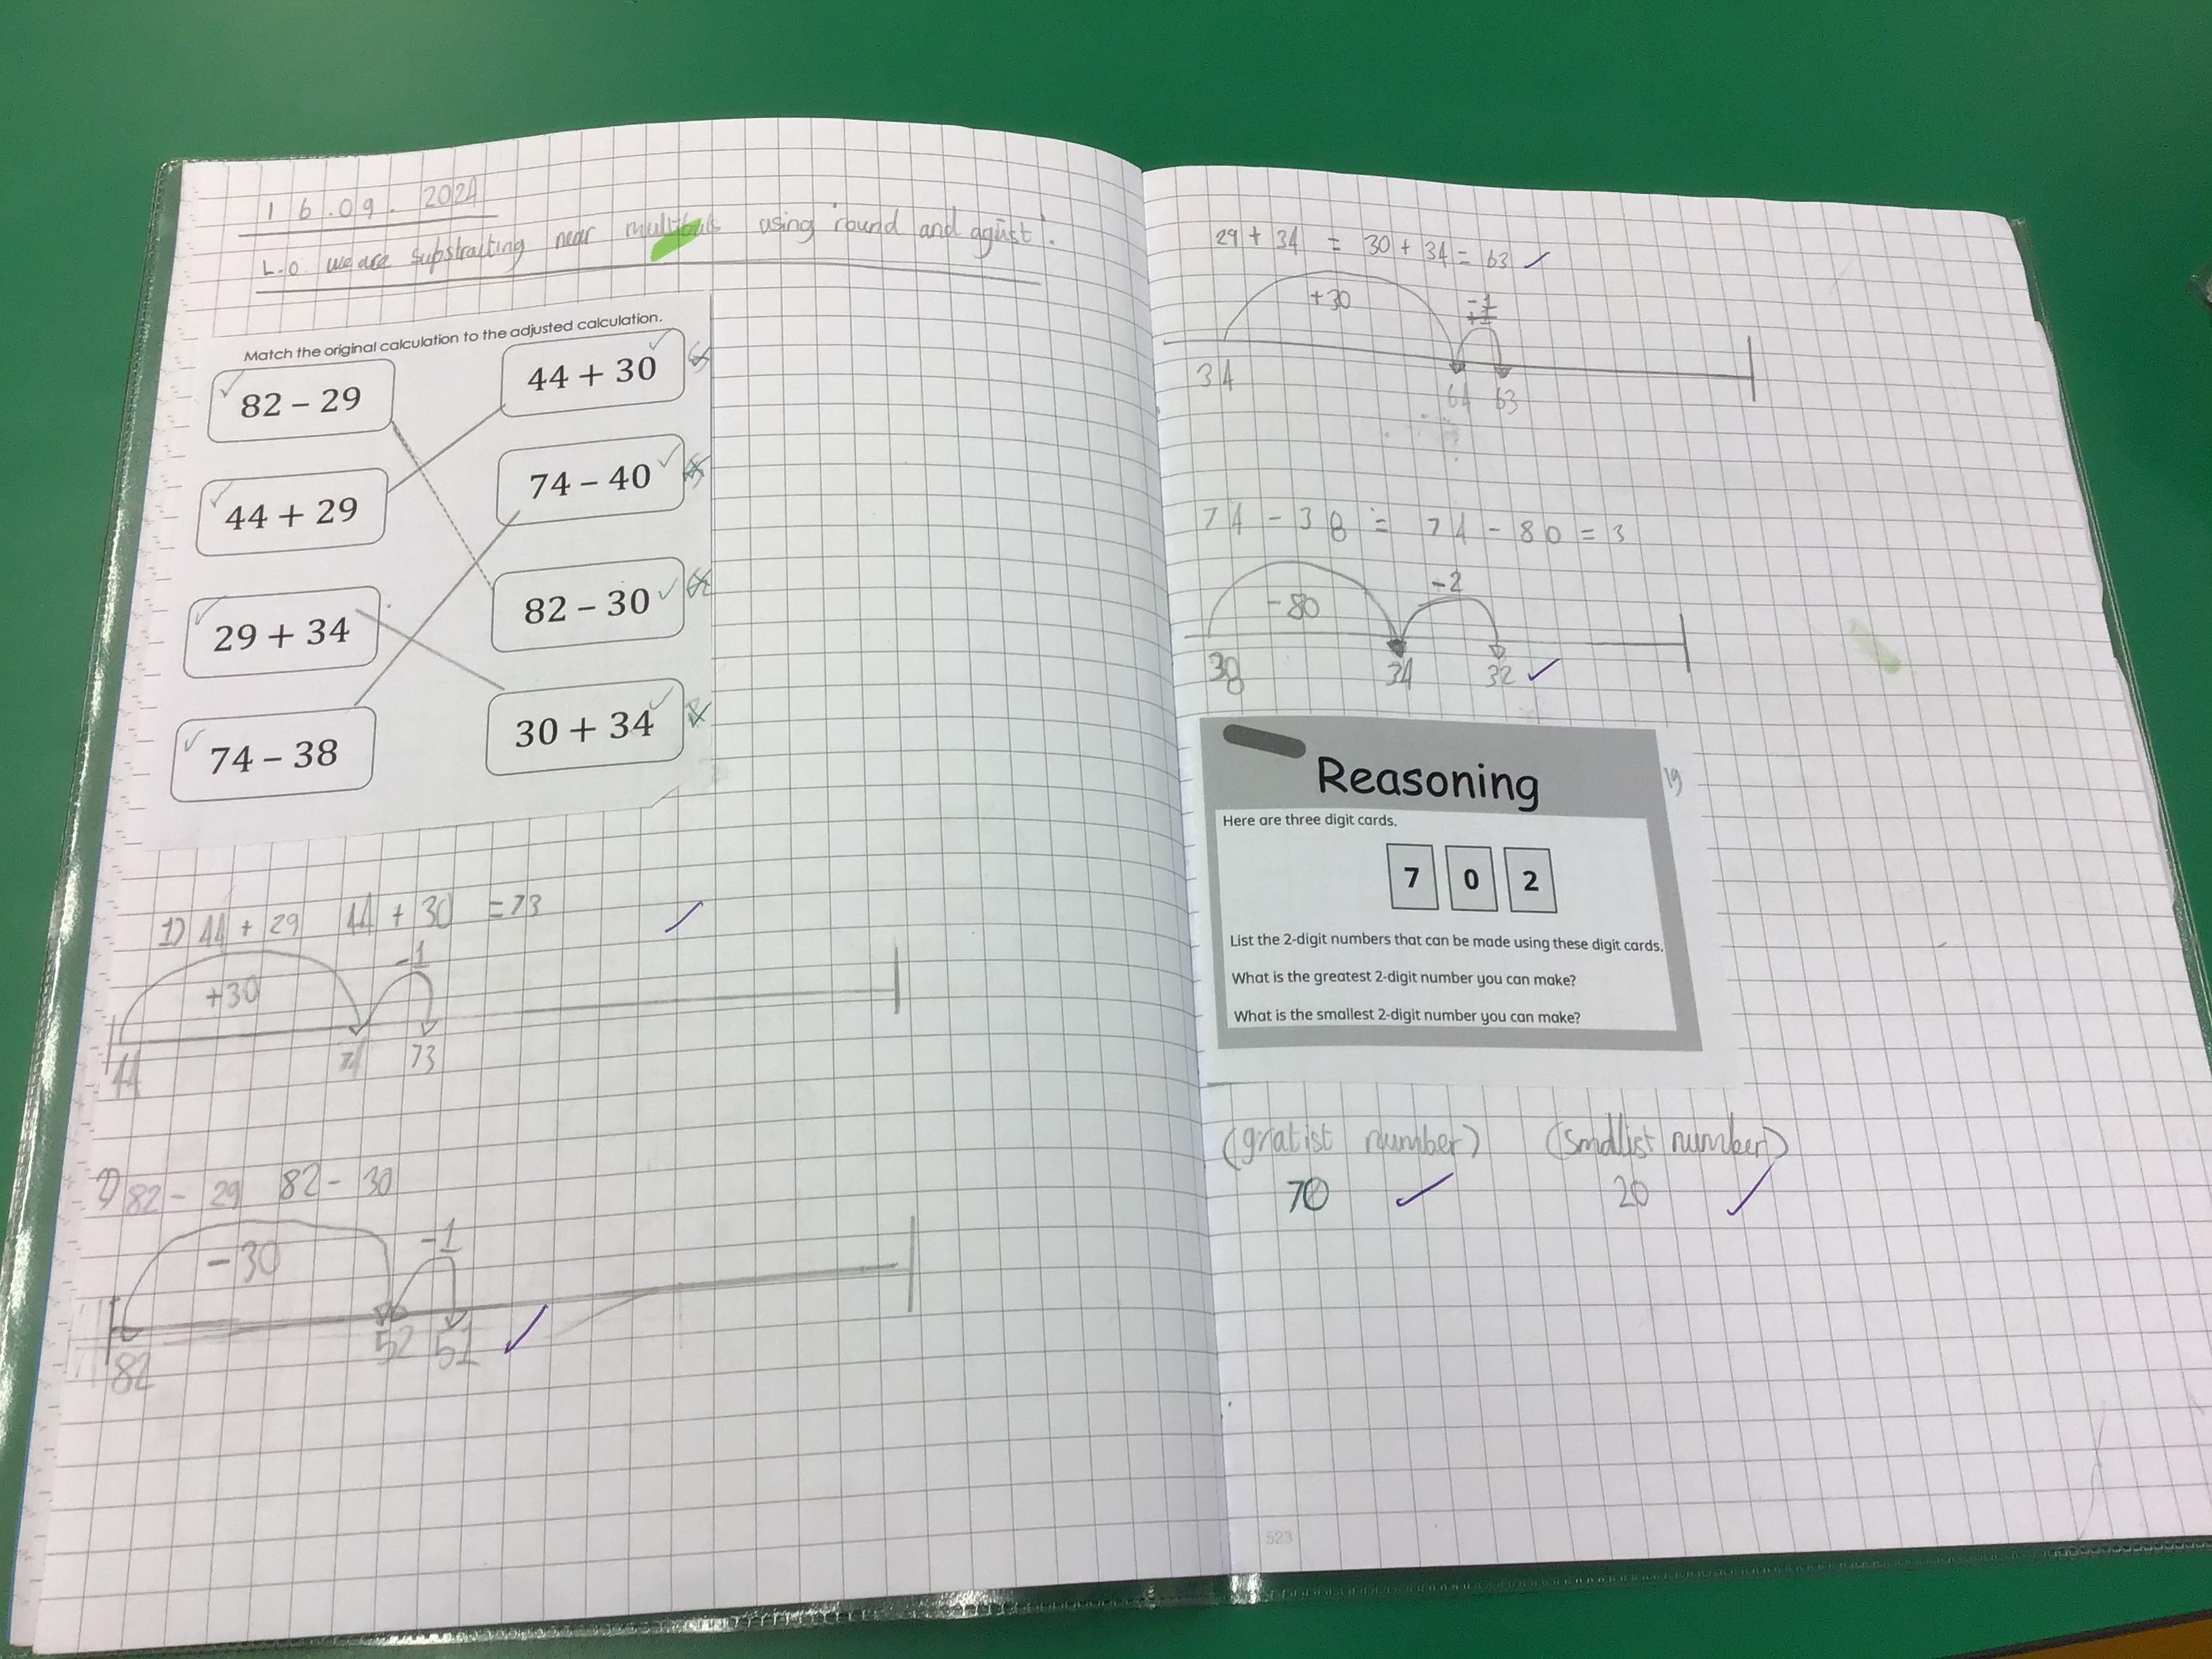 16.09.2024
L.O. we are substraiting near multibuls using 'round and agust'.
Match the original calculation to the adjusted calculation.
82 – 29
44 + 30
44 + 29
74 – 40
29 + 34
82 – 30
74 – 38
30 + 34
1) 44 + 29 44 + 30 = 73
+30
-1
44
74
73
82 - 29 82 - 30
-30
-1
82
52
51
29 + 34 = 30 + 34 = 63
+30
-1
34
64
63
74 - 38 = 74 - 80 = 3
-80
-2
38
34
32
Reasoning
19
Here are three digit cards.
7 0 2
List the 2-digit numbers that can be made using these digit cards.
What is the greatest 2-digit number you can make?
What is the smallest 2-digit number you can make?
(gratist number) (smallist number)
70 20
523